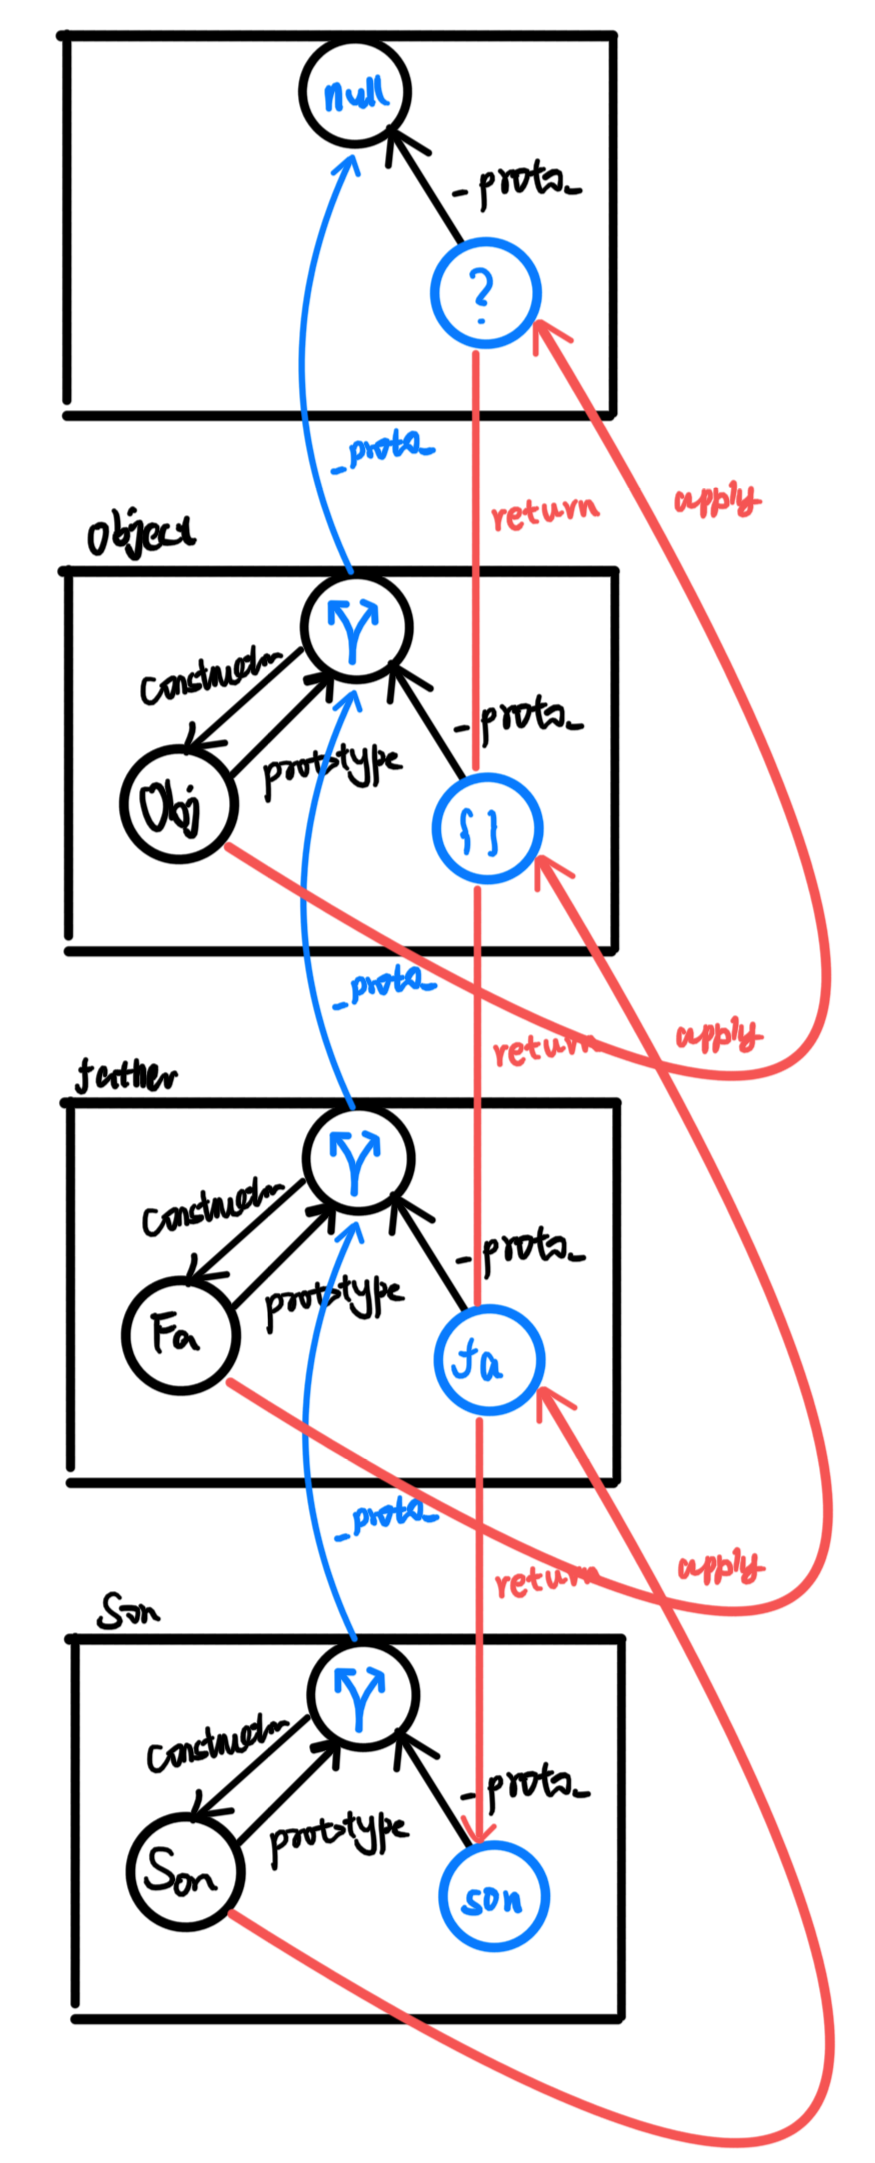 null
_proto_
?
_proto_
return
apply
Object
Constructor
_proto_
prototype
Obj
{}
_proto_
return
apply
father
Constructor
_proto_
prototype
Fa
fa
_proto_
return
apply
Son
Constructor
_proto_
prototype
Son
son